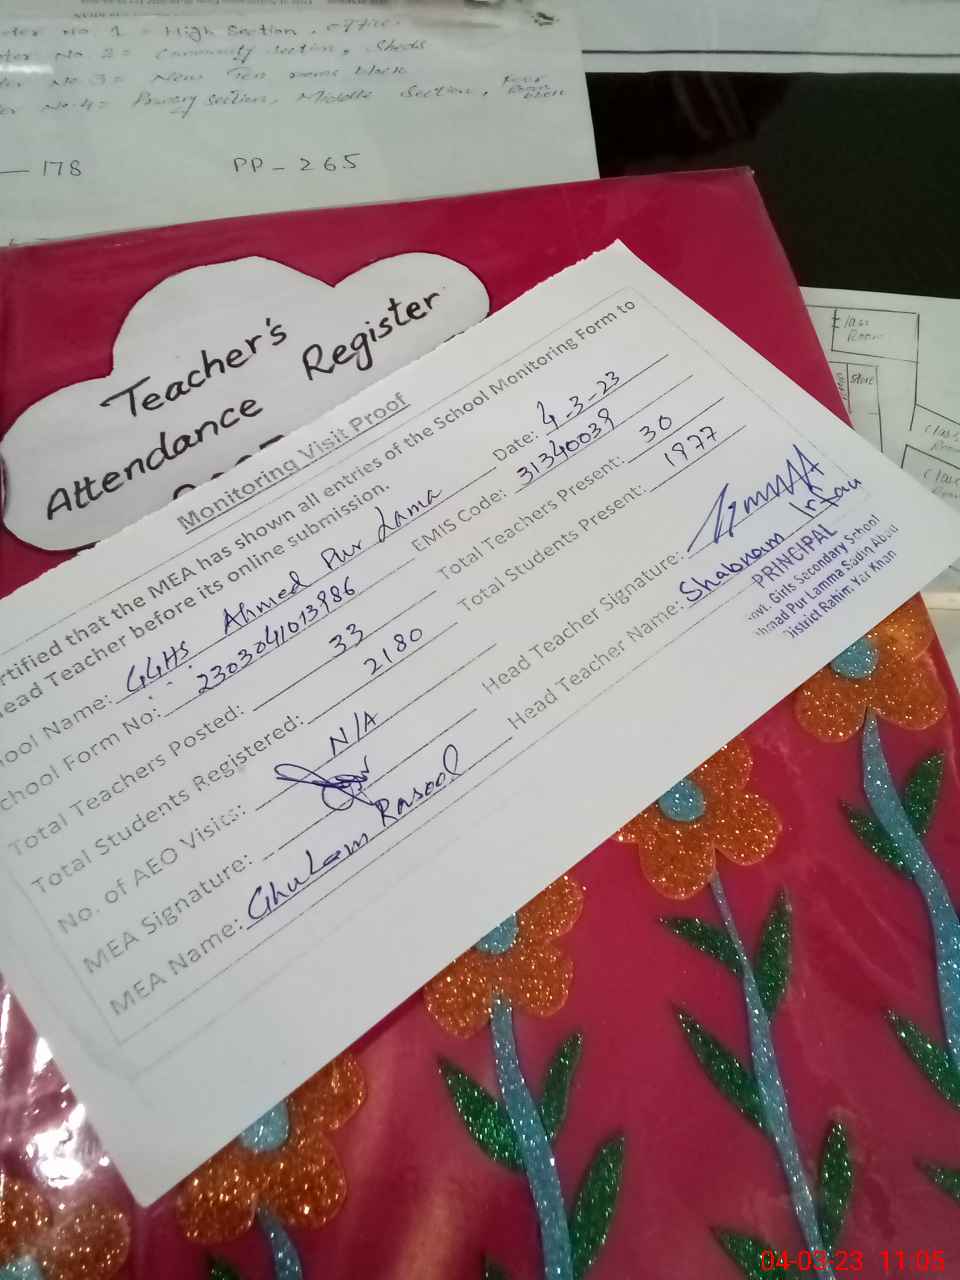 No. 1 = High Section, office.
No. 2 = Community Section, Sheds
No. 3 = New Ten rooms block
No. 4 = Primary section, Middle Section, Four Room block
178 PP - 265
Teacher's
Attendance Register
Monitoring Visit Proof
rtified that the MEA has shown all entries of the School Monitoring Form to
ead Teacher before its online submission.
Date: 4-3-23
ool Name: GGHS Ahmed Pur Lama
EMIS Code: 31340039
chool Form No: 2303041013986
Total Teachers Present: 30
Total Teachers Posted: 33
Total Students Present: 1977
Total Students Registered: 2180
Head Teacher Signature:
No. of AEO Visits: N/A
Head Teacher Name: Shabnam Irfan
MEA Signature:
MEA Name: Ghulam Rasool
PRINCIPAL
Govt. Girls Secondary School
Ahmad Pur Lamma Sadiq Abad
District Rahim Yar Khan
Class Room
Store
04-03-23 11:05